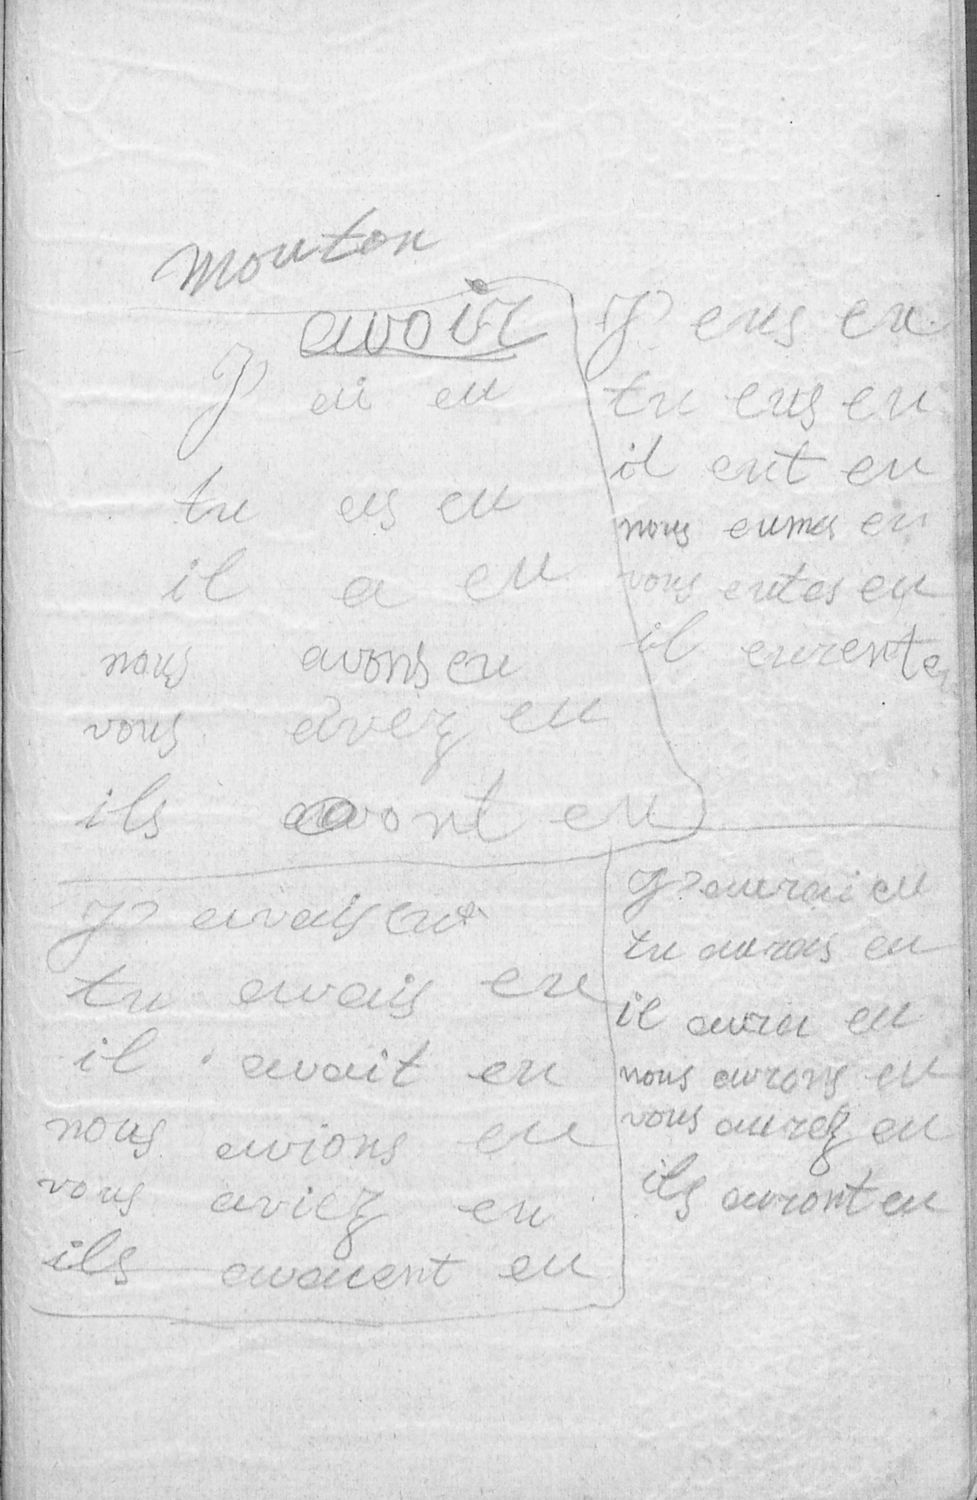 Mouton
avoir
J' ai eu
tu as eu
il a eu
nous avons eu
vous avez eu
ils avont eu
J' eus eu
tu eus eu
il eut eu
nous eumes eu
vous eutes eu
il eurent eu
J' avais eu
tu avais eu
il avait eu
nous avions eu
vous aviez eu
ils avaient eu
J' aurai eu
tu auras eu
il aura eu
nous aurons eu
vous aurez eu
ils auront eu